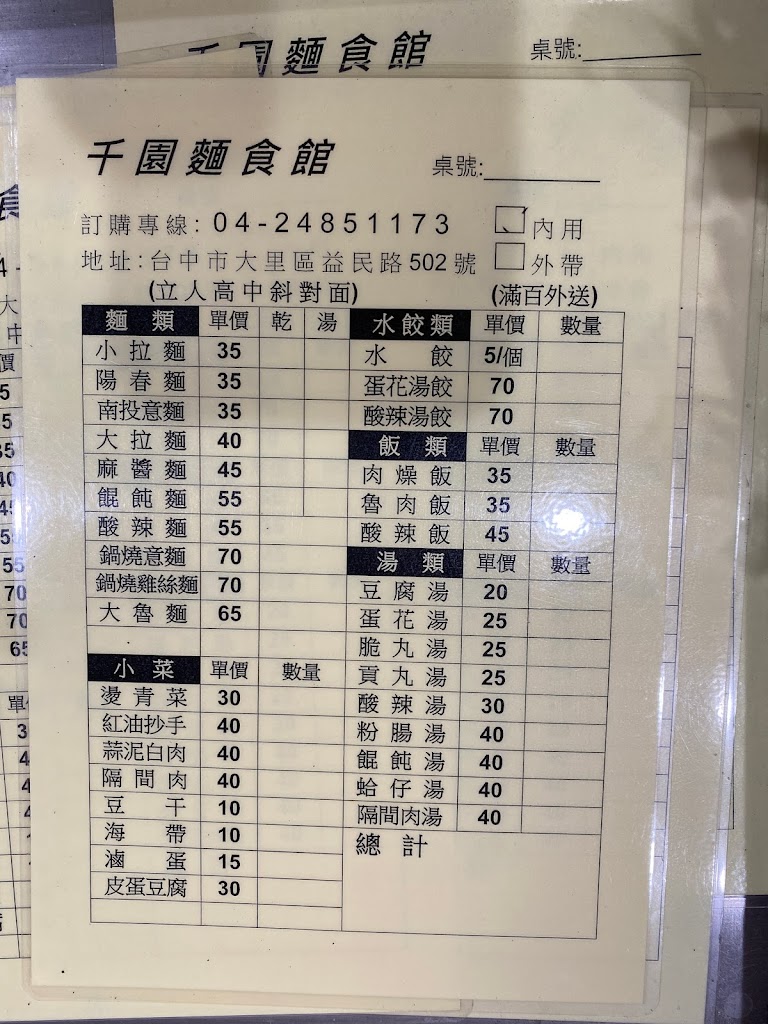 千園麵食館 桌號:
千園麵食館 桌號:
訂購專線: 04-24851173 內用
地址:台中市大里區益民路502號 外帶
(立人高中斜對面) (滿百外送)
麵類 單價 乾 湯
小拉麵 35
陽春麵 35
南投意麵 35
大拉麵 40
麻醬麵 45
餛飩麵 55
酸辣麵 55
鍋燒意麵 70
鍋燒雞絲麵 70
大魯麵 65
小菜 單價 數量
燙青菜 30
紅油抄手 40
蒜泥白肉 40
隔間肉 40
豆干 10
海帶 10
滷蛋 15
皮蛋豆腐 30
水餃類 單價 數量
水餃 5/個
蛋花湯餃 70
酸辣湯餃 70
飯類 單價 數量
肉燥飯 35
魯肉飯 35
酸辣飯 45
湯類 單價 數量
豆腐湯 20
蛋花湯 25
脆丸湯 25
貢丸湯 25
酸辣湯 30
粉腸湯 40
餛飩湯 40
蛤仔湯 40
隔間肉湯 40
總計